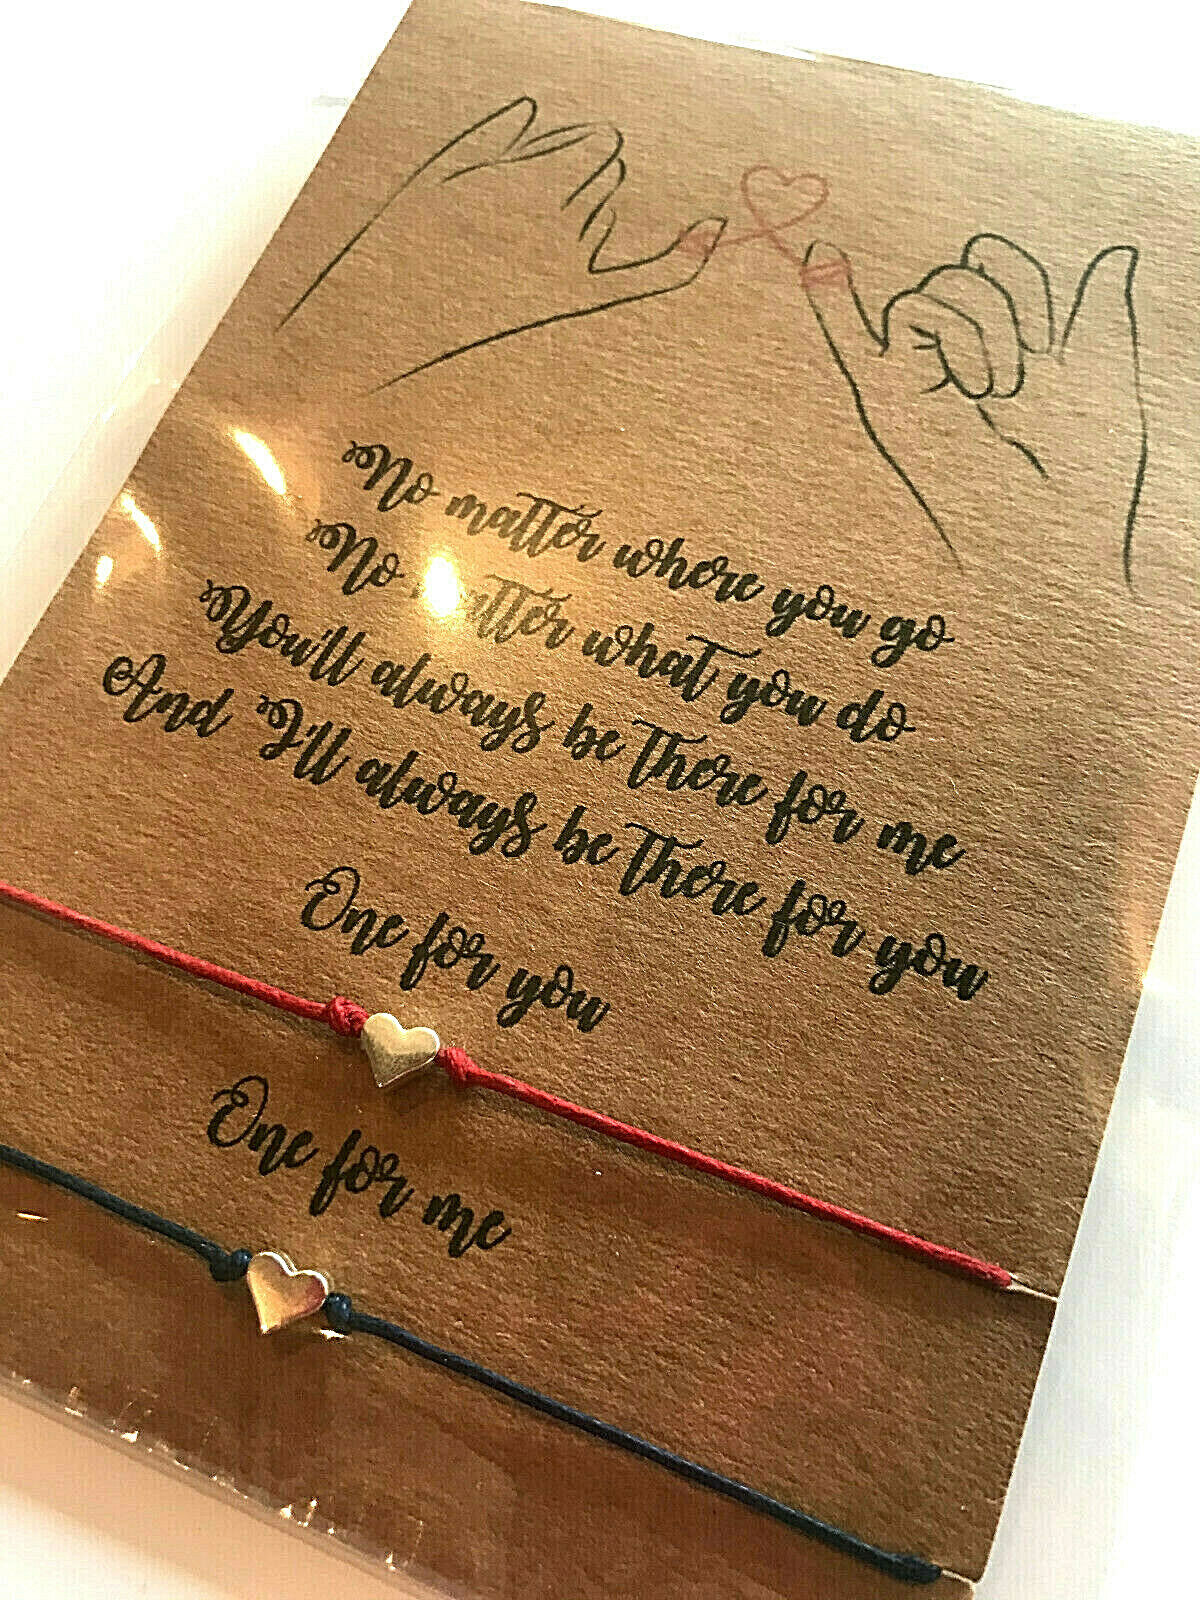 No matter where you go
No matter what you do
You'll always be there for me
And I'll always be there for you
One for you
One for me